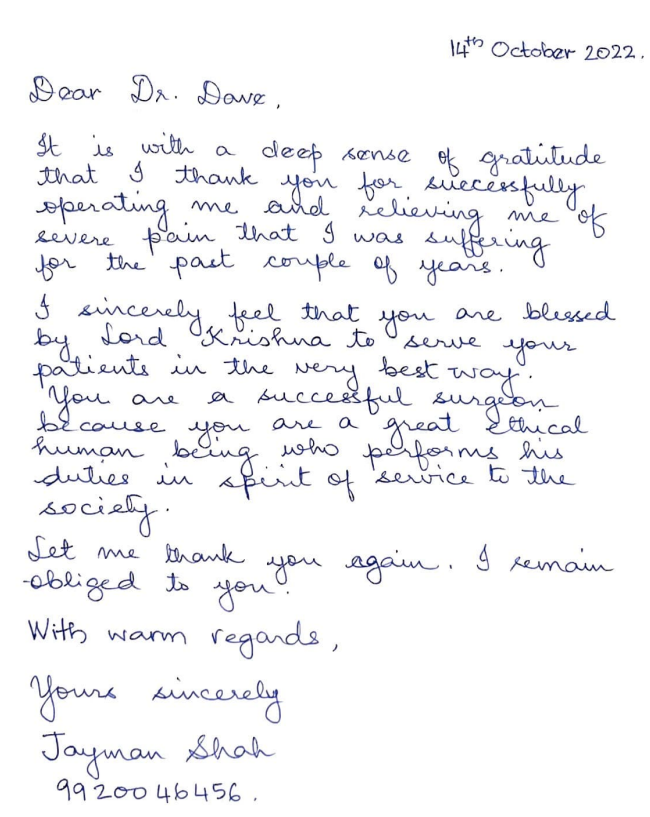 14th October 2022.
Dear Dr. Dave,
It is with a deep sense of gratitude
that I thank you for successfully
operating me and relieving me of
severe pain that I was suffering
for the past couple of years.
I sincerely feel that you are blessed
by Lord Krishna to serve your
patients in the very best way.
You are a successful surgeon
because you are a great ethical
human being who performs his
duties in spirit of service to the
society.
Let me thank you again. I remain
obliged to you.
With warm regards,
Yours sincerely
Jayman Shah
9920046456.